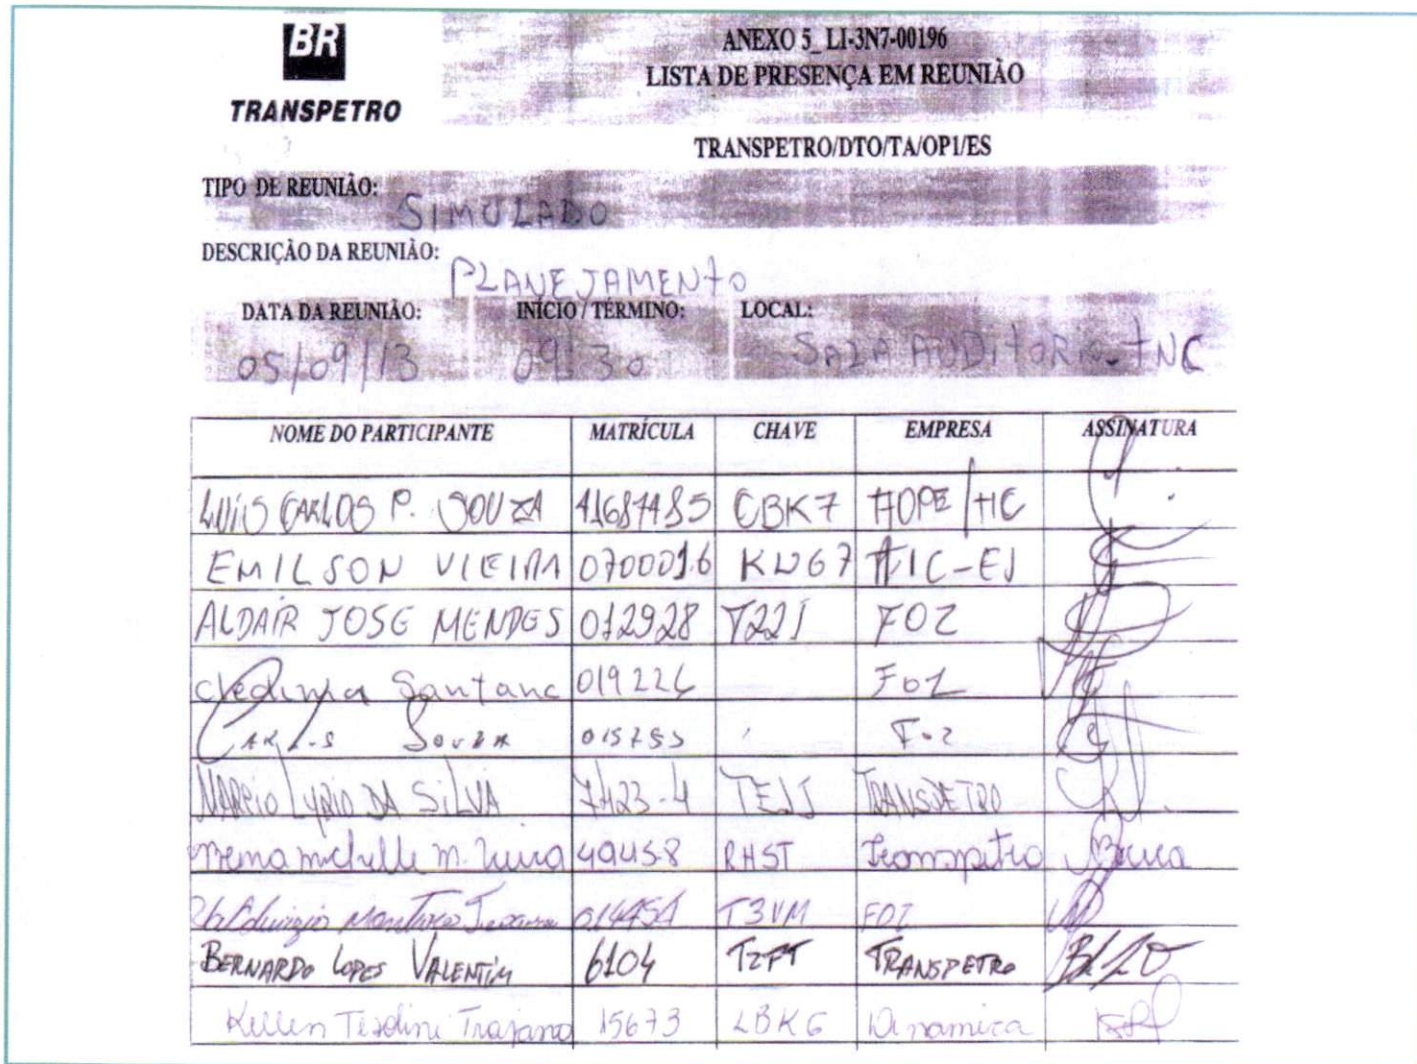 BR
TRANSPETRO
ANEXO 5_ LI-3N7-00196
LISTA DE PRESENÇA EM REUNIÃO
TRANSPETRO/DTO/TA/OP1/ES
TIPO DE REUNIÃO:
SIMULADO
DESCRIÇÃO DA REUNIÃO:
PLANEJAMENTO
DATA DA REUNIÃO: INÍCIO / TÉRMINO: LOCAL:
05/09/13 09:30 SALA AUDITORIO TNC
NOME DO PARTICIPANTE MATRÍCULA CHAVE EMPRESA ASSINATURA
LUIS CARLOS P. SOUZA CBK7 HOPE/TIC
EMILSON VIEIRA KW67
ALDAIR JOSE MENDES 012928 T22J FOZ
Santana FOZ
CARLOS SOUZA FOZ
MARCIO LYRIO DA SILVA 7423-4 TEJJ TRANSPETRO
michelle m. RHST Transpetro
T3VM FOZ
BERNARDO LOPES VALENTIM 6104 TZFT TRANSPETRO
Kellen Tesolini Trajano 15673 LBK6 Dinamica